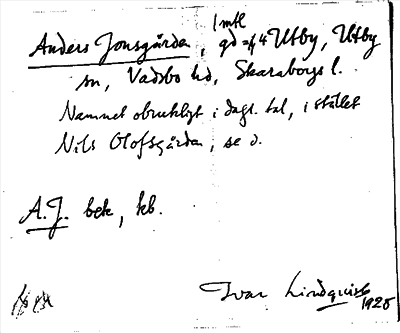 1 mtl
Anders Jonsgården, gd = 4 Utby, Utby
sn, Vadsbo hd, Skaraborgs l.
Namnet obrukligt i dagl. tal, i stället
Nils Olofsgården, se d.
A.J. bek, kb.
Ivar Lindquist
1925